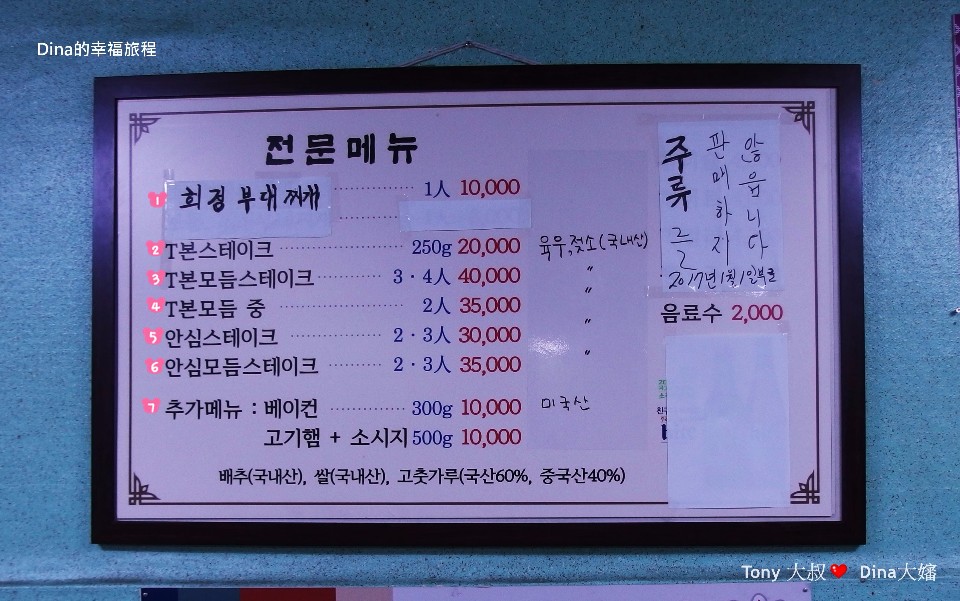 Dina的幸福旅程
전문메뉴
1 희정 부대찌개 1人 10,000
2 T본스테이크 250g 20,000 육우,젖소(국내산)
3 T본모듬스테이크 3·4人 40,000 〃
4 T본모듬 중 2人 35,000 〃
5 안심스테이크 2·3人 30,000 〃
6 안심모듬스테이크 2·3人 35,000 〃
7 추가메뉴 : 베이컨 300g 10,000 미국산
고기햄 + 소시지 500g 10,000
배추(국내산), 쌀(국내산), 고춧가루(국산60%, 중국산40%)
주류는
판매하지
않읍니다
2017년 1월 1일부로
음료수 2,000
Tony 大叔❤ Dina大嬸